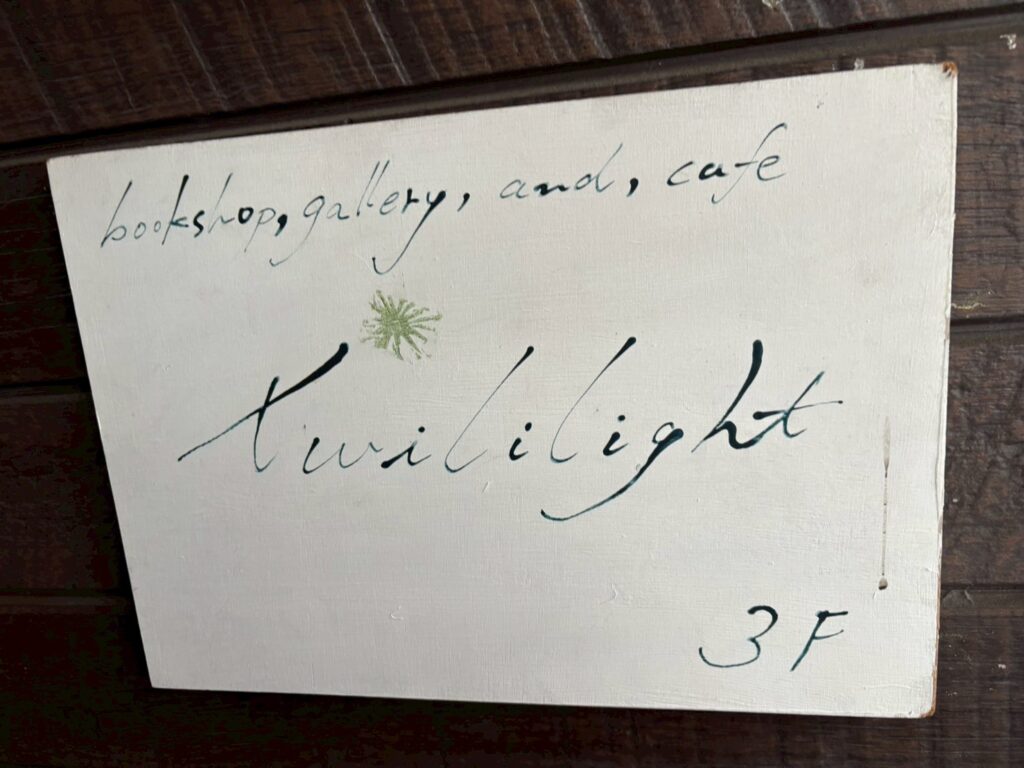 bookshop, gallery, and, cafe
twililight
3F